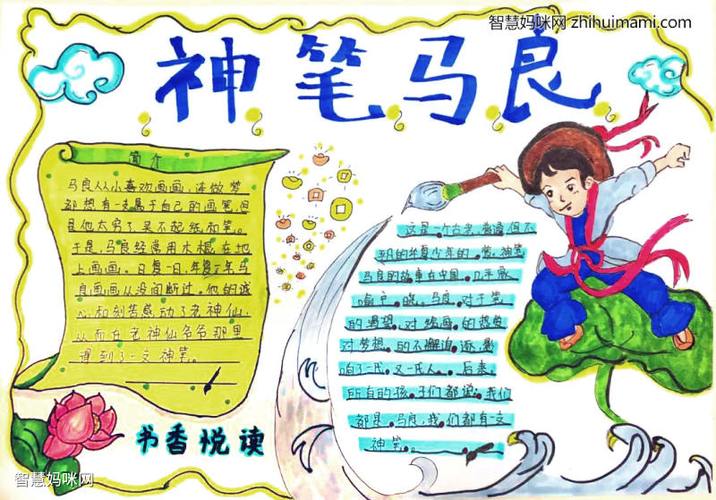 智慧妈咪网 zhihuimami.com
神笔马良
简介
马良从小喜欢画画,连做梦
都想有一支属于自己的画笔,但
是他太穷了买不起纸和笔。
于是,马良经常用木棍在地
上画画。日复一日,年复一年马
良画画从没间断过。他的诚
心和刻苦感动了老神仙,
从而在老神仙爷爷那里
得到了一支神笔。
这是一个古老,普通但不
的中华少年的梦,神笔
马良的故事在中国,几乎家
喻户晓,马良,对于笔
的渴望,对绘画,的热爱
对梦想,的不懈追逐,影
响了一代,又一代人。后来,
所有的孩子们都说:我们
都是,马良,我们都有一支
神笔。
书香悦读
智慧妈咪网